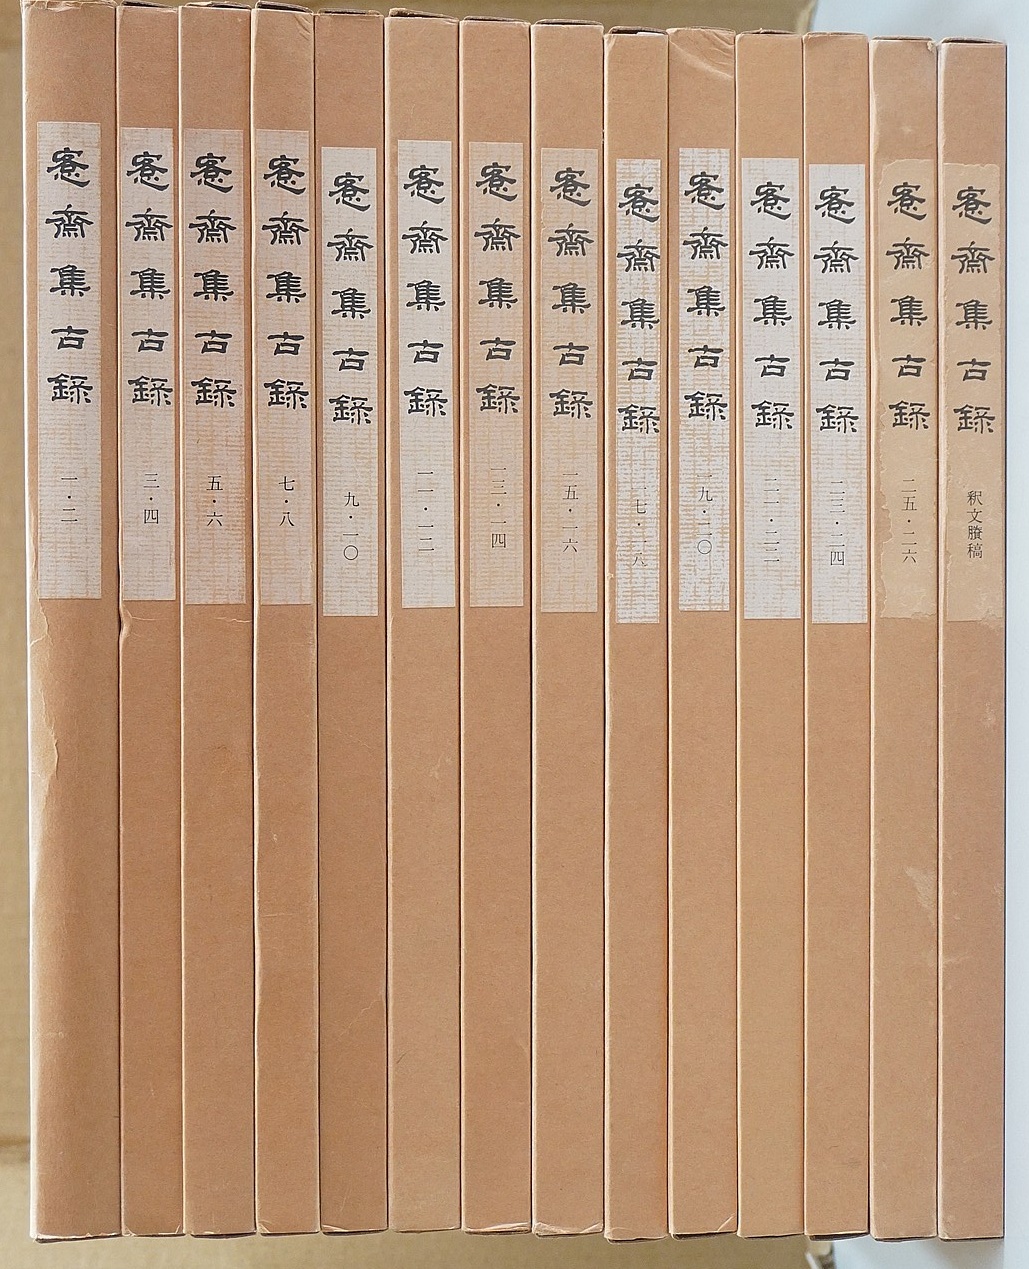 愙齋集古錄 一・二
愙齋集古錄 三・四
愙齋集古錄 五・六
愙齋集古錄 七・八
愙齋集古錄 九・一〇
愙齋集古錄 一一・一二
愙齋集古錄 一三・一四
愙齋集古錄 一五・一六
愙齋集古錄 一七・一八
愙齋集古錄 一九・二〇
愙齋集古錄 二一・二二
愙齋集古錄 二三・二四
愙齋集古錄 二五・二六
愙齋集古錄 釈文賸稿